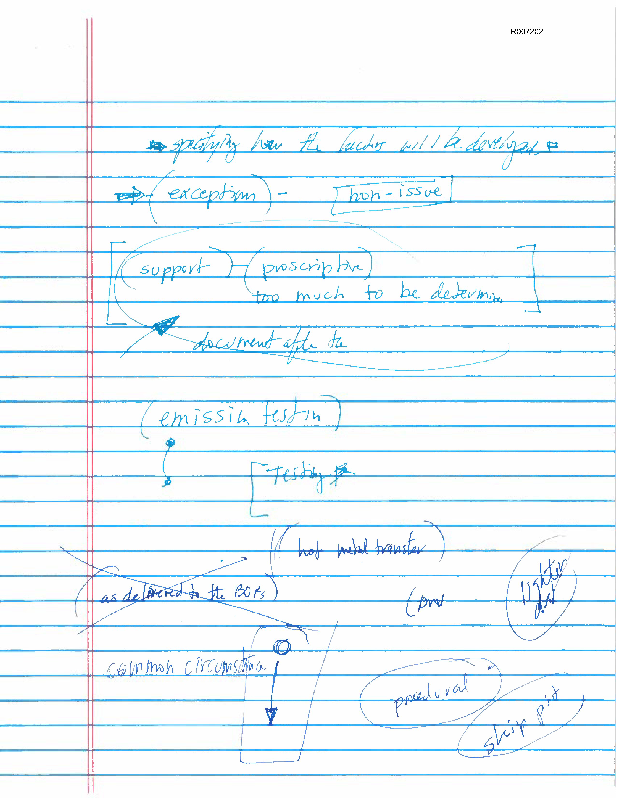 R007202
specifying how the factors will be developed
(exception) - [non-issue]
(support) - (proscriptive)
too much to be determin
document after the
(emission testin)
[Testing
(hot metal transfer)
as delivered to the BOFs)
lighter
common circumstance
procedural
skip pit